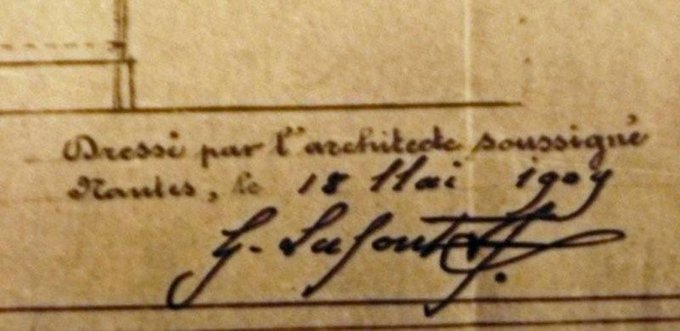 Dressé par l'architecte soussigné
Nantes, le 18 Mai 1909
G. Lafont